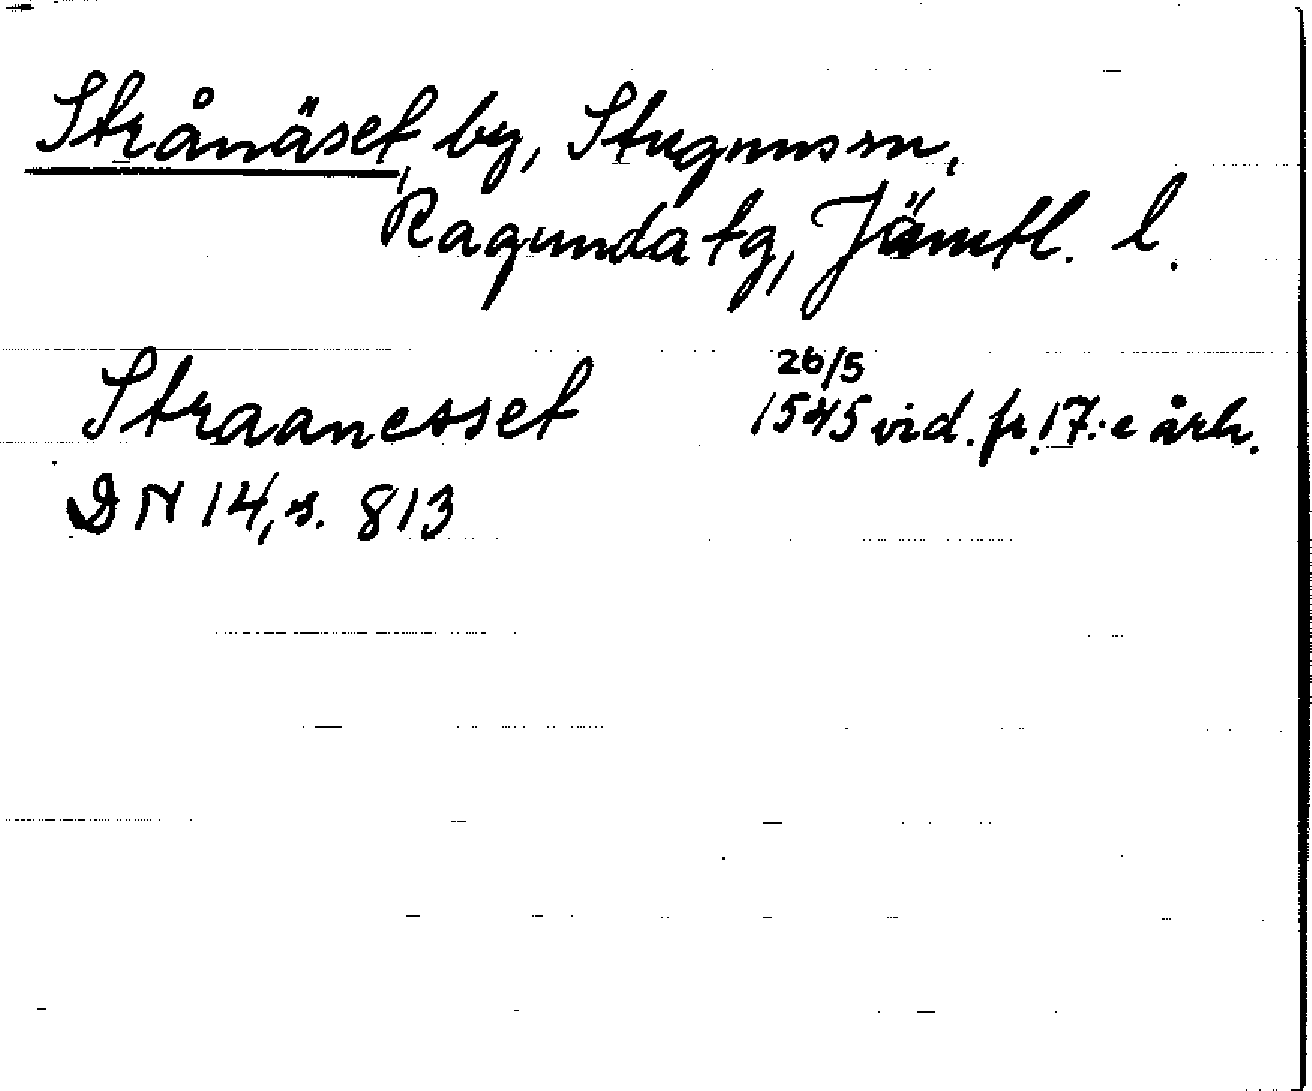 Strånäset, by, Stuguns sn,
Ragunda tg, Jämtl. l.
Straanesset 26/5 1545 vid. fr. 17:e årh.
DN 14, s. 813